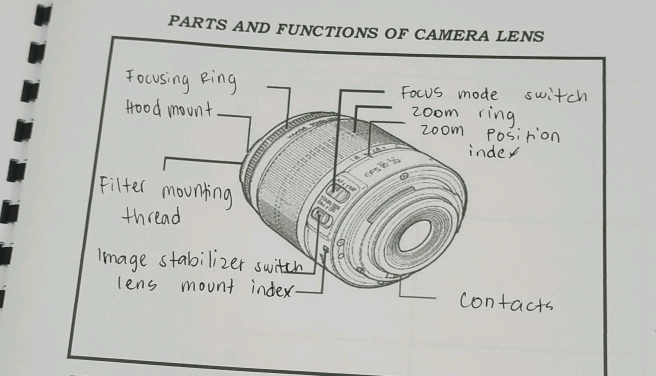 PARTS AND FUNCTIONS OF CAMERA LENS
Focusing Ring
Hood mount
Filter mounting
thread
Image stabilizer switch
lens mount index
Focus mode switch
zoom ring
zoom position
index
Contacts